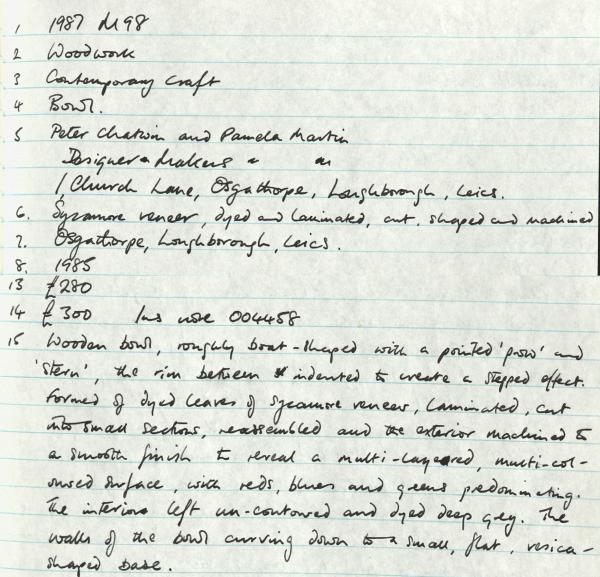 1 1987 M98
2 Woodwork
3 Contemporary Craft
4 Bowl.
5 Peter Chatwin and Pamela Martin
Designer Makers "
1 Church Lane, Osgathorpe, Loughborough, Leics.
6. Sycamore veneer, dyed and laminated, cut, shaped and machined
7. Osgathorpe, Loughborough, Leics.
8. 1985
13 £280
14 £300 Ins note 004458
15 Wooden bowl, roughly boat-shaped with a pointed 'prow' and
'stern', the rim between indented to create a stepped effect.
Formed of dyed leaves of sycamore veneer, laminated, cut
into small sections, reassembled and the exterior machined to
a smooth finish to reveal a multi-layered, multi-col-
oured surface, with reds, blues and greens predominating.
The interior left un-contoured and dyed deep grey. The
walls of the bowl curving down to a small, flat, vesica-
shaped base.